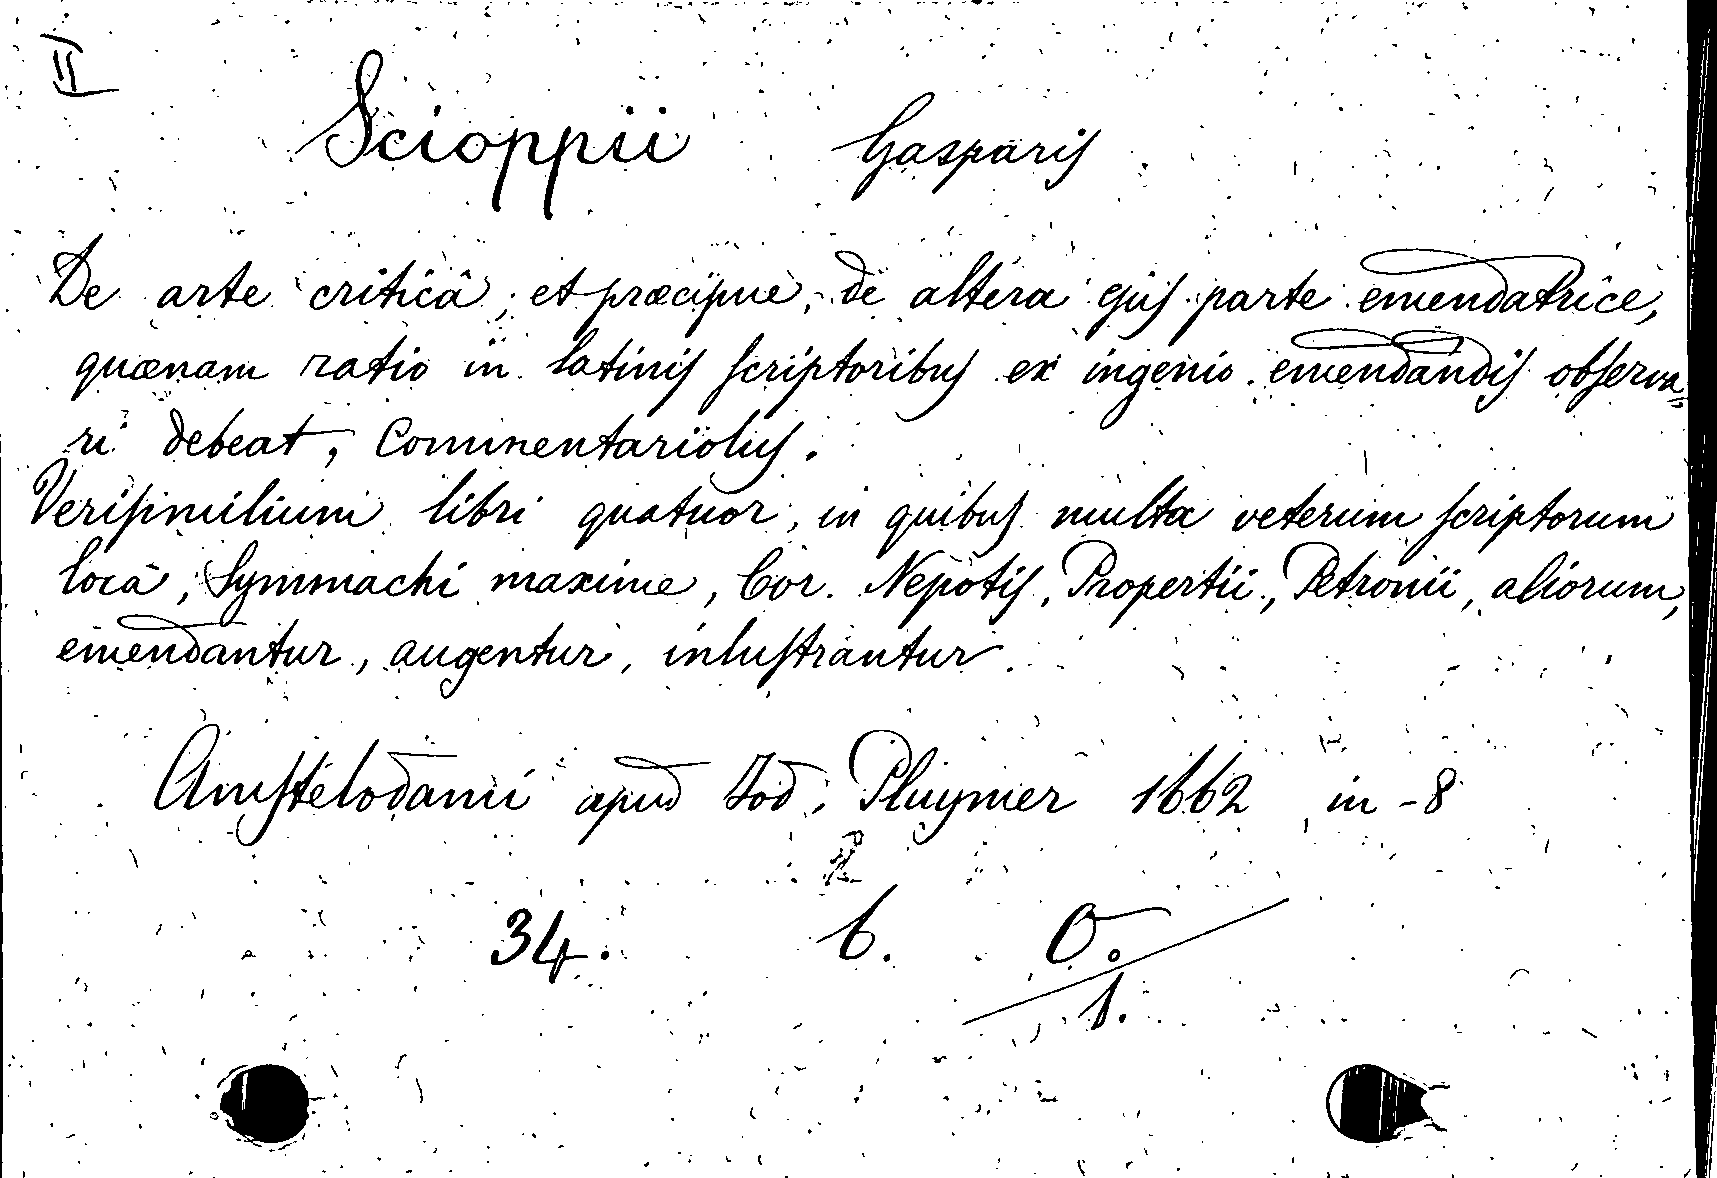 II)
Scioppii Gasparis
De arte criticâ, et præcipue, de altera ejus parte emendatrice,
quænam ratio in latinis scriptoribus ex ingenio emendandis observa-
ri debeat, Commentariolus.
Verisimilium libri quatuor, in quibus multa veterum scriptorum
loca, Symmachi maxime, Cor. Nepotis, Propertii, Petronii, aliorum,
emendantur, augentur, inlustrantur.
Amstelodami apud Jod. Pluymer 1662 in-8
34. 6. O.
1.